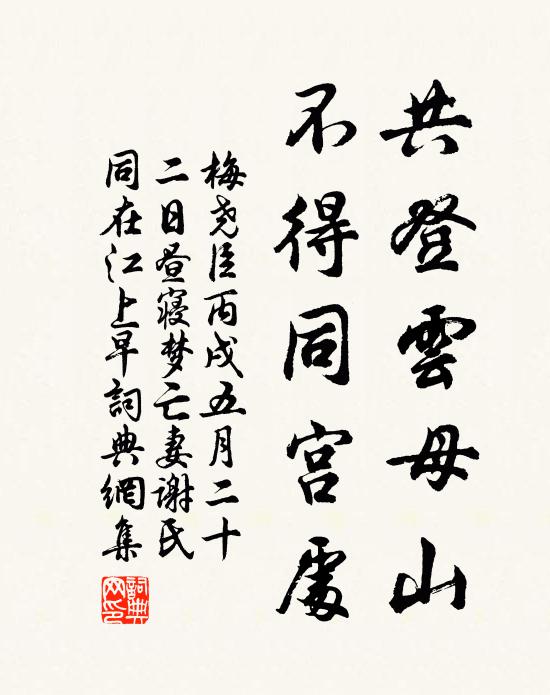 共登雲母山
不得同宮處
梅尧臣丙戌五月二十
二日昼寝梦亡妻谢氏
同在江上早詞典網集
詞典
网印